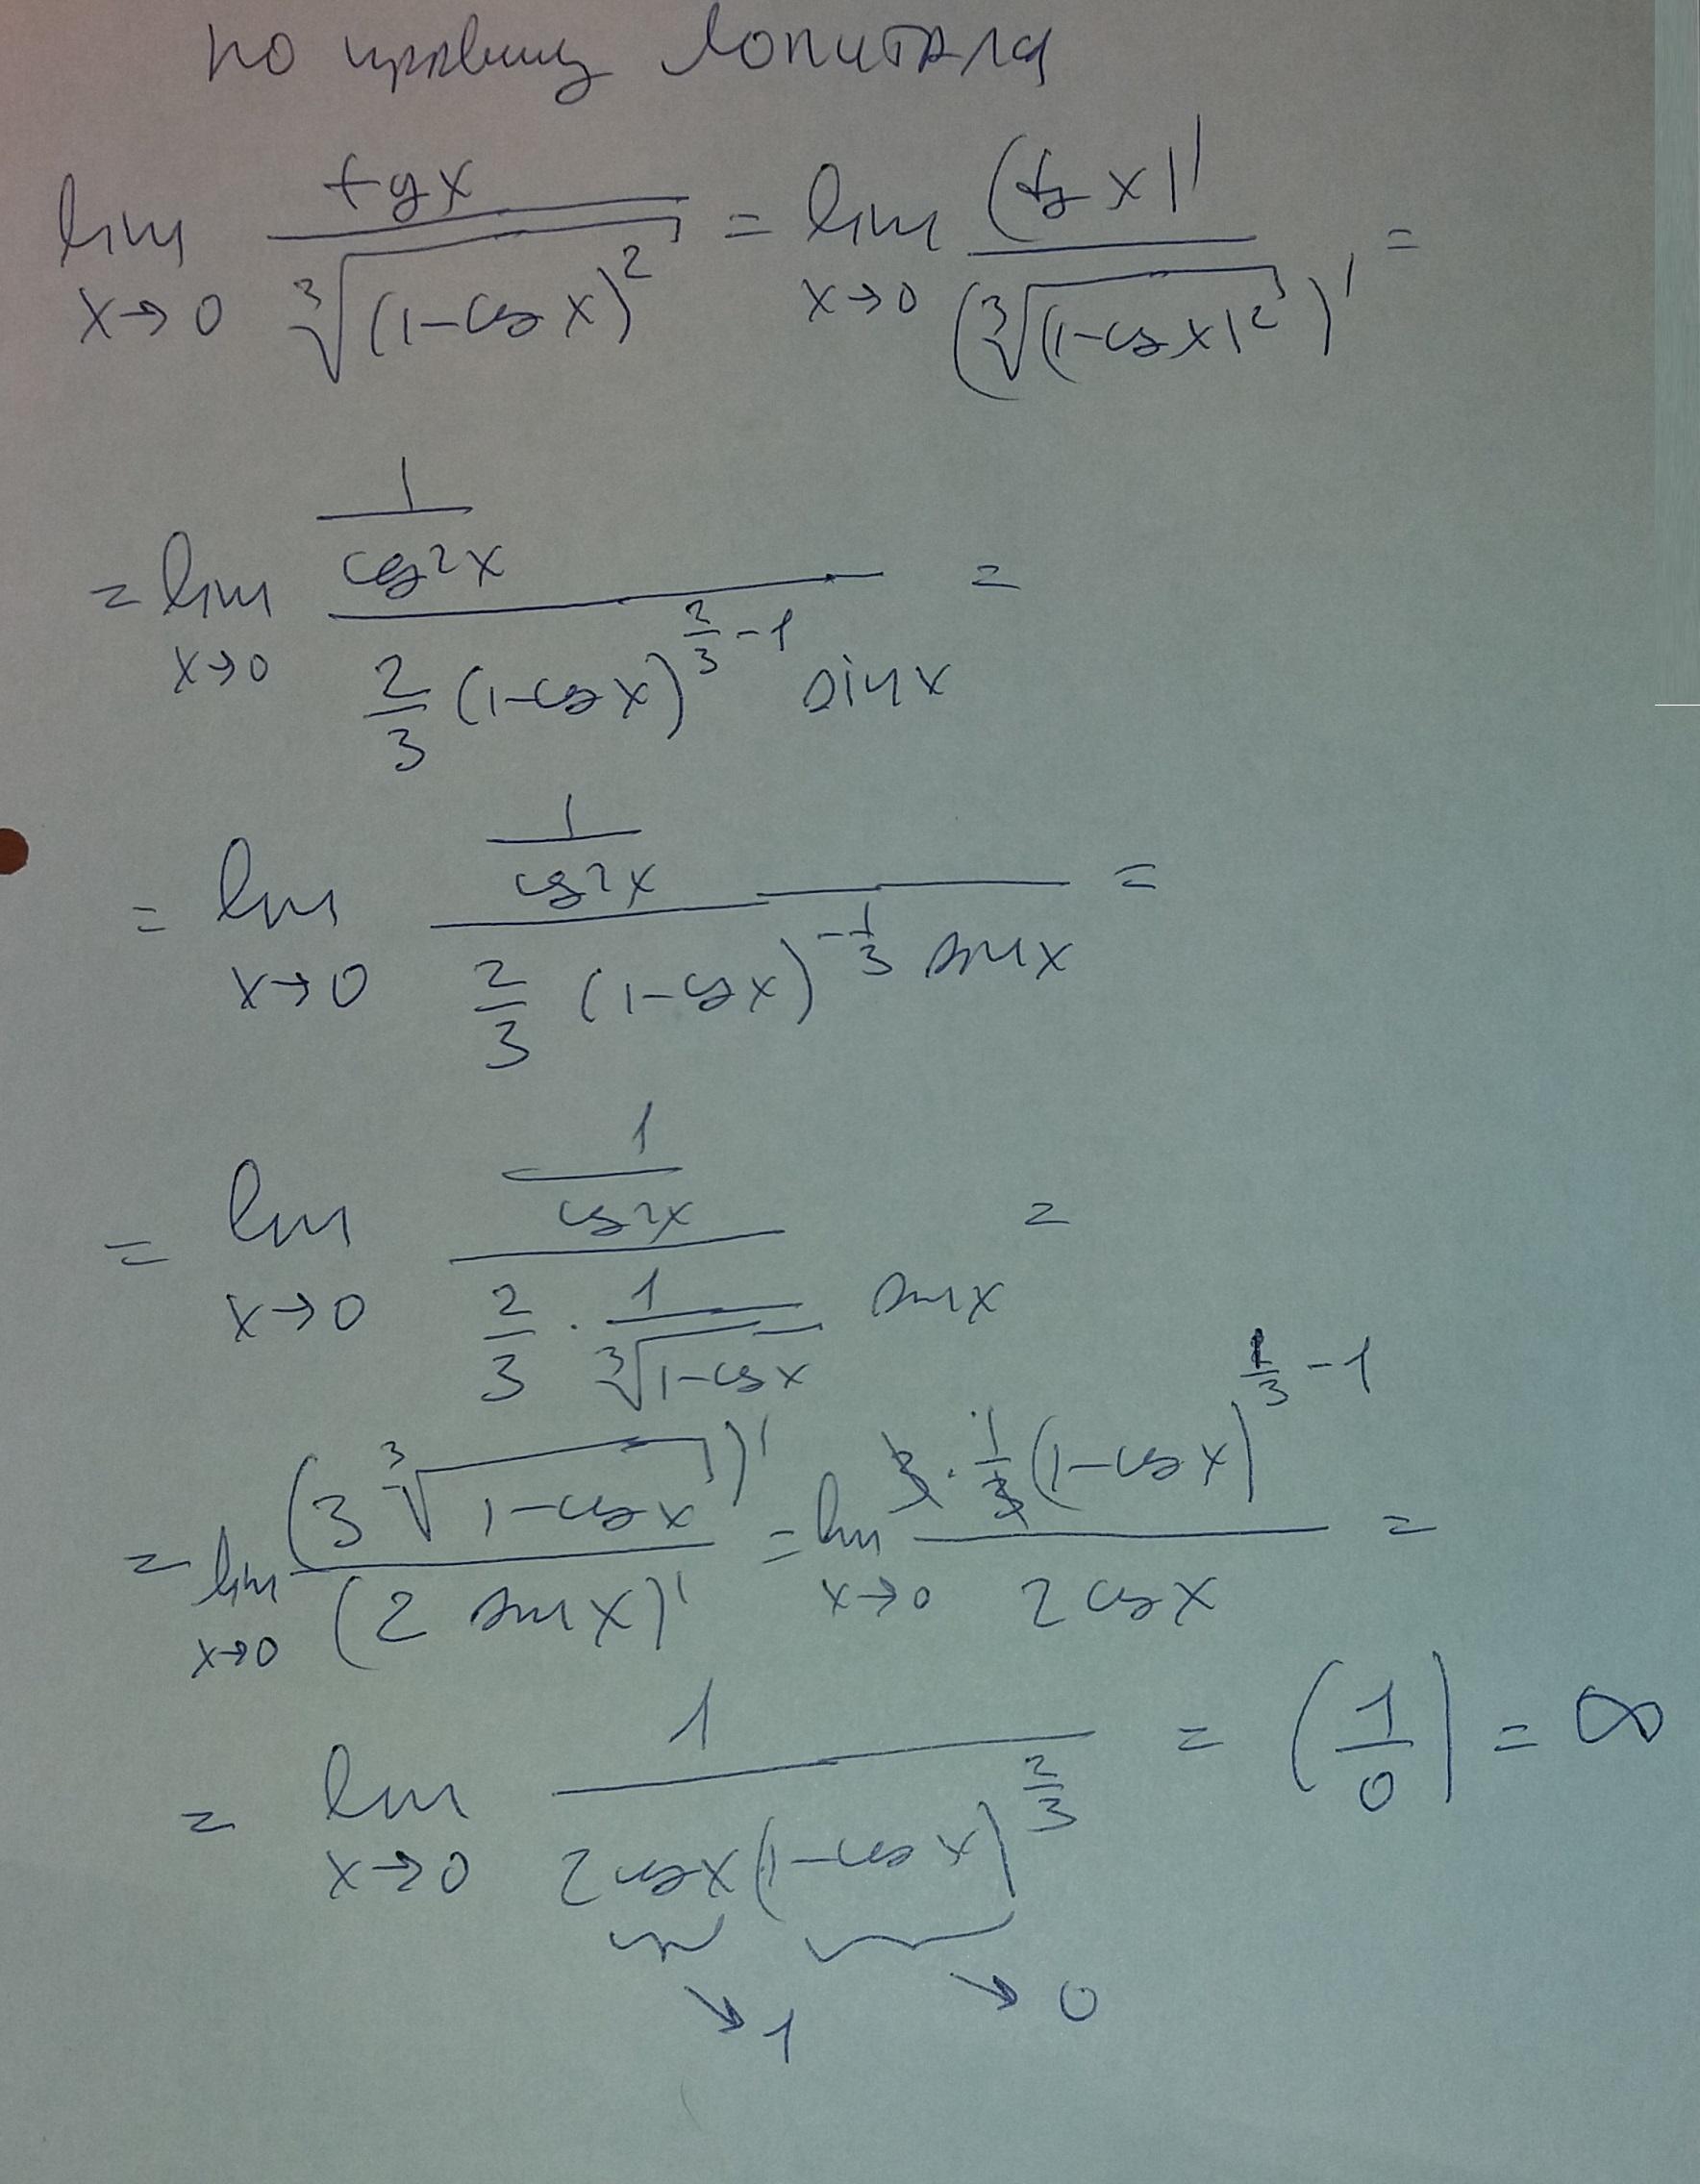 по правилу Лопиталя
lim x→0 tgx / ∛((1-cos x)²) = lim x→0 (tg x)' / (∛((1-cos x)²))' =
= lim x→0 (1/cos²x) / (2/3 (1-cos x)^(2/3 - 1) sin x) =
= lim x→0 (1/cos²x) / (2/3 (1-cos x)^(-1/3) sin x) =
= lim x→0 (1/cos²x) / (2/3 · 1/∛(1-cos x) sin x) =
= lim x→0 (3 ∛(1-cos x))' / (2 sin x)' = lim x→0 3 · 1/3 (1-cos x)^(1/3 - 1) / (2 cos x) =
= lim x→0 1 / (2 cos x (1-cos x)^(2/3)) = (1/0) = ∞
→ 1 → 0